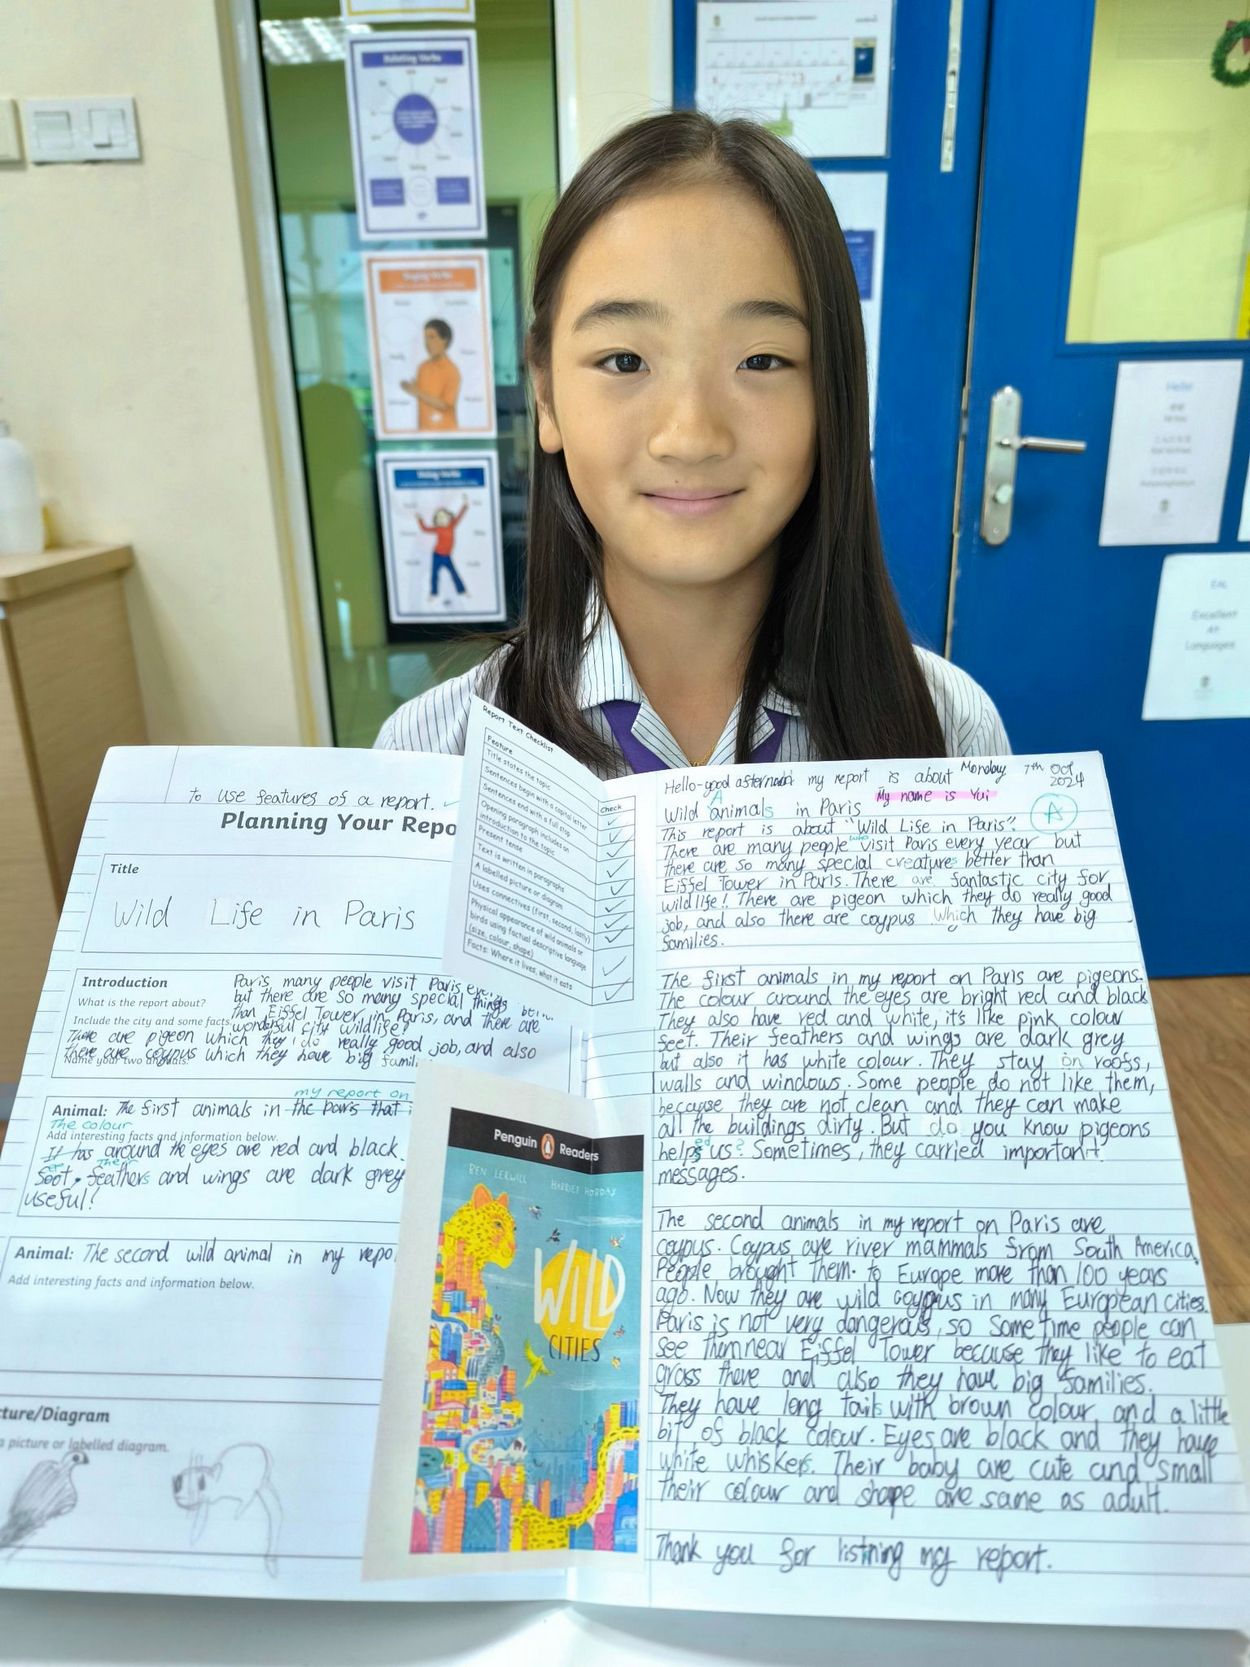 to use features of a report.
Planning Your Repo
Title
Wild Life in Paris
Introduction
What is the report about?
Include the city and some facts
Name your two animals.
Paris many people visit Paris
but there are so many special things
than Eiffel Tower in Paris, and there are
wonderful city wildlife?
There are pigeon which they do really good job, and also
there are coypus which they have big famil
my report on
Animal: The first animals in the Paris that
The colour
Add interesting facts and information below.
It has around the eyes are red and black.
feathers and wings are dark grey
useful!
Animal: The second wild animal in my repo
Add interesting facts and information below.
cture/Diagram
a picture or labelled diagram.
Report Text Checklist
Feature
Check
Title states the topic
Sentences begin with a capital letter
Sentences end with a full stop
Opening paragraph includes an
introduction to the topic
Present tense
Text is written in paragraphs
A labelled picture or diagram
Uses connectives (first, second, lastly)
Physical appearance of wild animals or
birds using factual descriptive language
(size, colour, shape)
Facts: Where it lives, what it eats
Penguin Readers
BEN LERWILL HARRIET HOBDAY
WILD
CITIES
Hello-good afternoon my report is about Monday 7th Oct
2024
Wild Animals in Paris My name is Yui
A
This report is about "Wild Life in Paris".
There are many people who visit Paris every year but
there are so many special creatures better than
Eiffel Tower in Paris. There are fantastic city for
wildlife! There are pigeon which they do really good
job, and also there are coypus which they have big
families.
The first animals in my report on Paris are pigeons.
The colour around the eyes are bright red and black
They also have red and white, it's like pink colour
feet. Their feathers and wings are dark grey
but also it has white colour. They stay on roofs,
walls and windows. Some people do not like them,
because they are not clean and they can make
all the buildings dirty. But do you know pigeons
helped us? Sometimes, they carried important
messages.
The second animals in my report on Paris are
coypus. Coypus are river mammals from South America.
People brought them to Europe more than 100 years
ago. Now they are wild coypus in many European cities.
Paris is not very dangerous, so Sometime people can
see them near Eiffel Tower because they like to eat
grass there and also they have big families.
They have long tails with brown colour and a little
bit of black colour. Eyes are black and they have
white whiskers. Their baby are cute and small
their colour and shape are same as adult.
Thank you for listning my report.
Hello!
EAL
Excellent
At
Languages